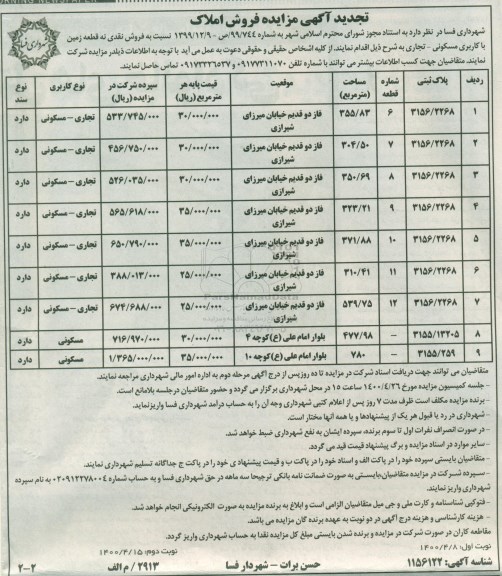 تجدید آگهی مزایده فروش املاک
شهرداری فسا در نظر دارد به استناد مجوز شورای محترم اسلامی شهر به شماره ۹۹/۷۴۴/ص - ۱۳۹۹/۱۲/۹ نسبت به فروش نقدی نه قطعه زمین
با کاربری مسکونی - تجاری به شرح ذیل اقدام نمایند. از کلیه اشخاص حقیقی و حقوقی دعوت به عمل می آید با توجه به اطلاعات ذیل در مزایده شرکت
نمایند. متقاضیان جهت کسب اطلاعات بیشتر می توانند با شماره تلفن ۰۹۱۷۷۳۱۱۰۷۰ و ۰۹۱۷۳۳۲۶۵۳۷ تماس حاصل نمایند.
ردیف پلاک ثبتی شماره قطعه مساحت (مترمربع) موقعیت قیمت پایه هر مترمربع (ریال) سپرده شرکت در مزایده (ریال) نوع کاربری نوع سند
۱ ۳۱۵۶/۲۲۶۸ ۶ ۳۵۵/۸۳ فاز دو قدیم خیابان میرزای شیرازی ۳۰/۰۰۰/۰۰۰ ۵۳۳/۷۴۵/۰۰۰ تجاری – مسکونی دارد
۲ ۳۱۵۶/۲۲۶۸ ۷ ۳۰۴/۵۰ فاز دو قدیم خیابان میرزای شیرازی ۳۰/۰۰۰/۰۰۰ ۴۵۶/۷۵۰/۰۰۰ تجاری – مسکونی دارد
۳ ۳۱۵۶/۲۲۶۸ ۸ ۳۵۰/۶۹ فاز دو قدیم خیابان میرزای شیرازی ۳۰/۰۰۰/۰۰۰ ۵۲۶/۰۳۵/۰۰۰ تجاری – مسکونی دارد
۴ ۳۱۵۶/۲۲۶۸ ۹ ۳۲۳/۲۱ فاز دو قدیم خیابان میرزای شیرازی ۳۵/۰۰۰/۰۰۰ ۵۶۵/۶۱۸/۰۰۰ تجاری – مسکونی دارد
۵ ۳۱۵۶/۲۲۶۸ ۱۰ ۳۷۱/۸۸ فاز دو قدیم خیابان میرزای شیرازی ۳۵/۰۰۰/۰۰۰ ۶۵۰/۷۹۰/۰۰۰ تجاری – مسکونی دارد
۶ ۳۱۵۶/۲۲۶۸ ۱۱ ۳۱۰/۴۱ فاز دو قدیم خیابان میرزای شیرازی ۲۵/۰۰۰/۰۰۰ ۳۸۸/۰۱۳/۰۰۰ تجاری – مسکونی دارد
۷ ۳۱۵۶/۲۲۶۸ ۱۲ ۵۳۹/۷۵ فاز دو قدیم خیابان میرزای شیرازی ۲۵/۰۰۰/۰۰۰ ۶۷۴/۶۸۸/۰۰۰ تجاری – مسکونی دارد
۸ ۳۱۵۵/۱۳۲۰۵ – ۴۷۷/۹۸ بلوار امام علی (ع) کوچه ۴ ۳۰/۰۰۰/۰۰۰ ۷۱۶/۹۷۰/۰۰۰ مسکونی دارد
۹ ۳۱۵۵/۲۵۹ – ۷۸۰ بلوار امام علی (ع) کوچه ۱۰ ۳۵/۰۰۰/۰۰۰ ۱/۳۶۵/۰۰۰/۰۰۰ مسکونی دارد
متقاضیان می توانند جهت دریافت اسناد شرکت در مزایده تا ده روز پس از درج آگهی مرحله دوم به اداره امور مالی شهرداری مراجعه نمایند.
- جلسه کمیسیون مزایده مورخ ۱۴۰۰/۴/۲۶ ساعت ۱۵ در محل شهرداری برگزار می گردد و حضور متقاضیان در جلسه بلامانع است.
- برنده مزایده مکلف است ظرف مدت ۷ روز پس از اعلام کتبی شهرداری وجه آن را به حساب درآمد شهرداری فسا واریز نماید.
- شهرداری در رد یا قبول هر یک از پیشنهادها و یا همه آنها مختار است.
- در صورت انصراف نفرات اول تا سوم برنده، سپرده ایشان به نفع شهرداری ضبط خواهد شد.
- سایر موارد در اسناد مزایده و برگ پیشنهاد قیمت قید می گردد.
- متقاضیان بایستی سپرده خود را در پاکت الف و اسناد خود را در پاکت ب و قیمت پیشنهادی خود را در پاکت ج جداگانه تسلیم شهرداری نمایند.
- سپرده شرکت در مزایده متقاضیان، بایستی به صورت ضمانت نامه بانکی ترجیحا سه ماهه در حق شهرداری فسا و به حساب شماره ۰۲۰۹۱۲۲۷۸۰۰۴ به نام سپرده
شهرداری واریز نمایند.
- فتوکپی شناسنامه و کارت ملی و جی میل متقاضیان الزامی است و ابلاغ به برنده مزایده به صورت الکترونیکی انجام خواهد شد.
- هزینه کارشناسی و هزینه درج آگهی در دو نوبت به عهده برنده گان مزایده می باشد.
مقاطعه کاران در صورت شرکت در مزایده و برنده شدن بایستی مبلغ کل مزایده نقدا به حساب شهرداری واریز گردد.
نوبت اول: ۱۴۰۰/۴/۸ نوبت دوم: ۱۴۰۰/۴/۱۵
شناسه آگهی: ۱۱۵۶۱۲۲ حسن برات - شهردار فسا ۲۹۱۳/ م الف ۲-۲